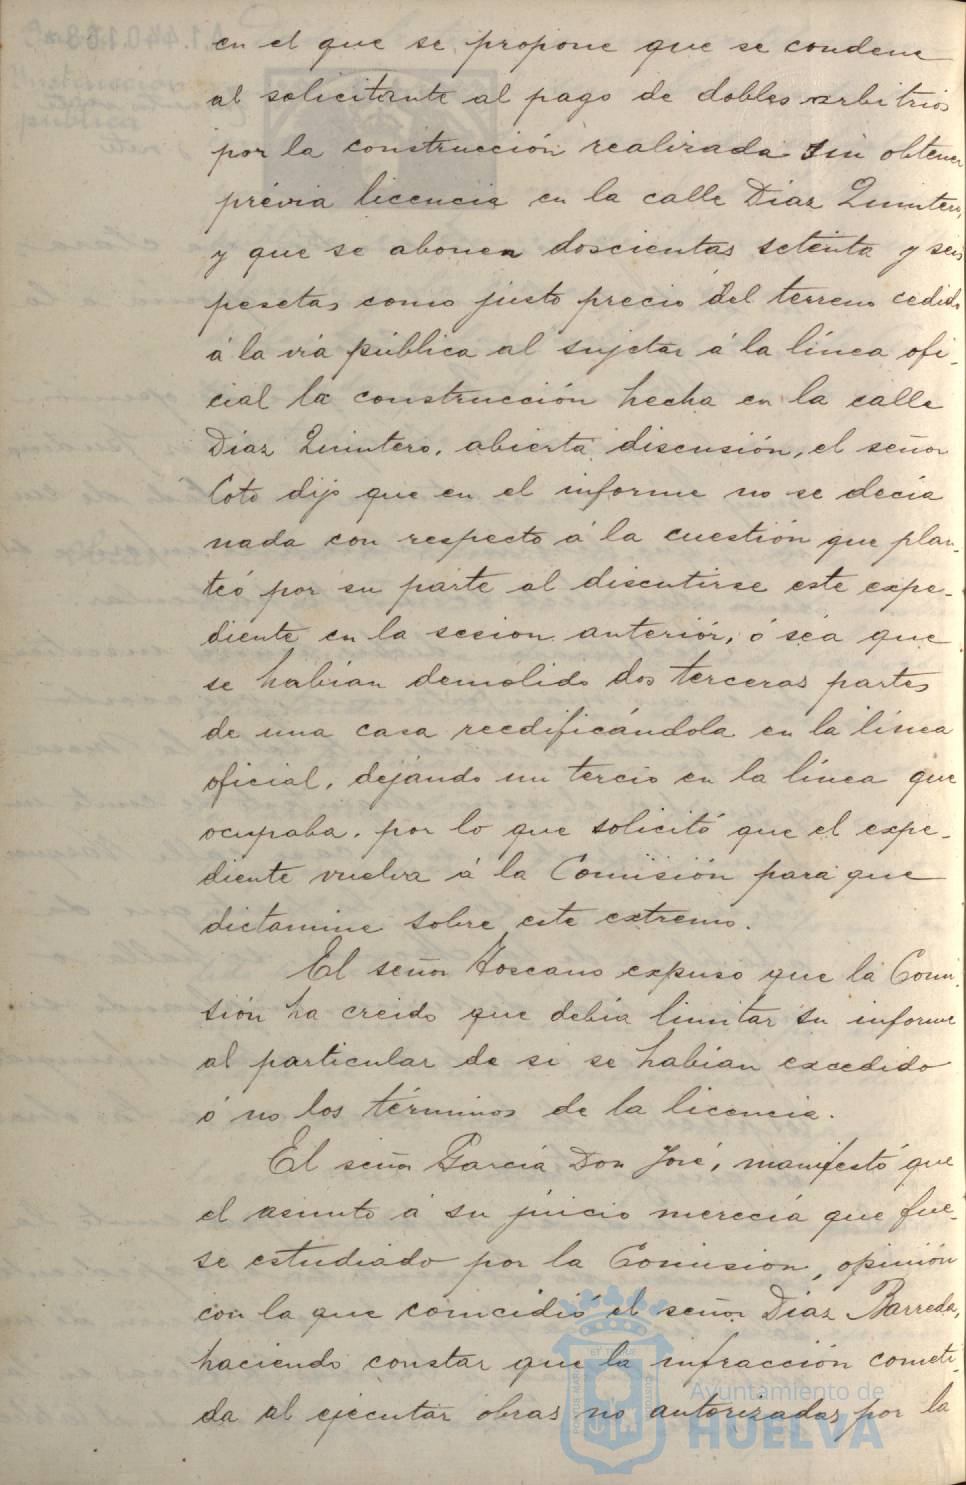 en el que se propone que se condene
al solicitante al pago de dobles arbitrios
por la construcción realizada sin obtener
prévia licencia en la calle Diaz Quintero,
y que se abonen doscientas setenta y seis
pesetas como justo precio del terreno cedido
á la via pública al sujetar á la línea ofi-
cial la construcción hecha en la calle
Diaz Quintero, abierta discusión, el señor
Coto dijo que en el informe no se decia
nada con respecto á la cuestión que plan-
teó por su parte al discutirse este expe-
diente en la sesion anterior, ó sea que
se habian demolido dos terceras partes
de una casa reedificándola en la línea
oficial, dejando un tercio en la línea que
ocupaba, por lo que solicitó que el expe-
diente vuelva á la Comisión para que
dictamine sobre este extremo.
El señor Toscano expuso que la Comi-
sión ha creido que debia limitar su informe
al particular de si se habian excedido
ó no los términos de la licencia.
El señor García Don José, manifestó que
el asunto á su júicio merecia que fue-
se estudiado por la Comision, opinión
con la que coincidió el señor Diaz Barreda,
haciendo constar que la infracción cometi-
da al ejecutar obras no autorizadas por la
Ayuntamiento de
HUELVA